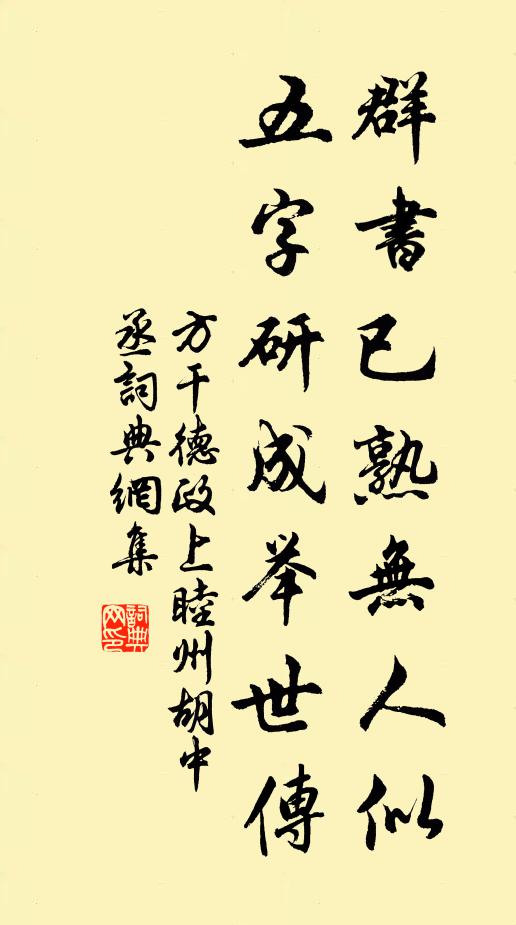 群書已熟無人似
五字研成举世傳
方干德政上睦州胡中
丞詞典網集
詞典網印